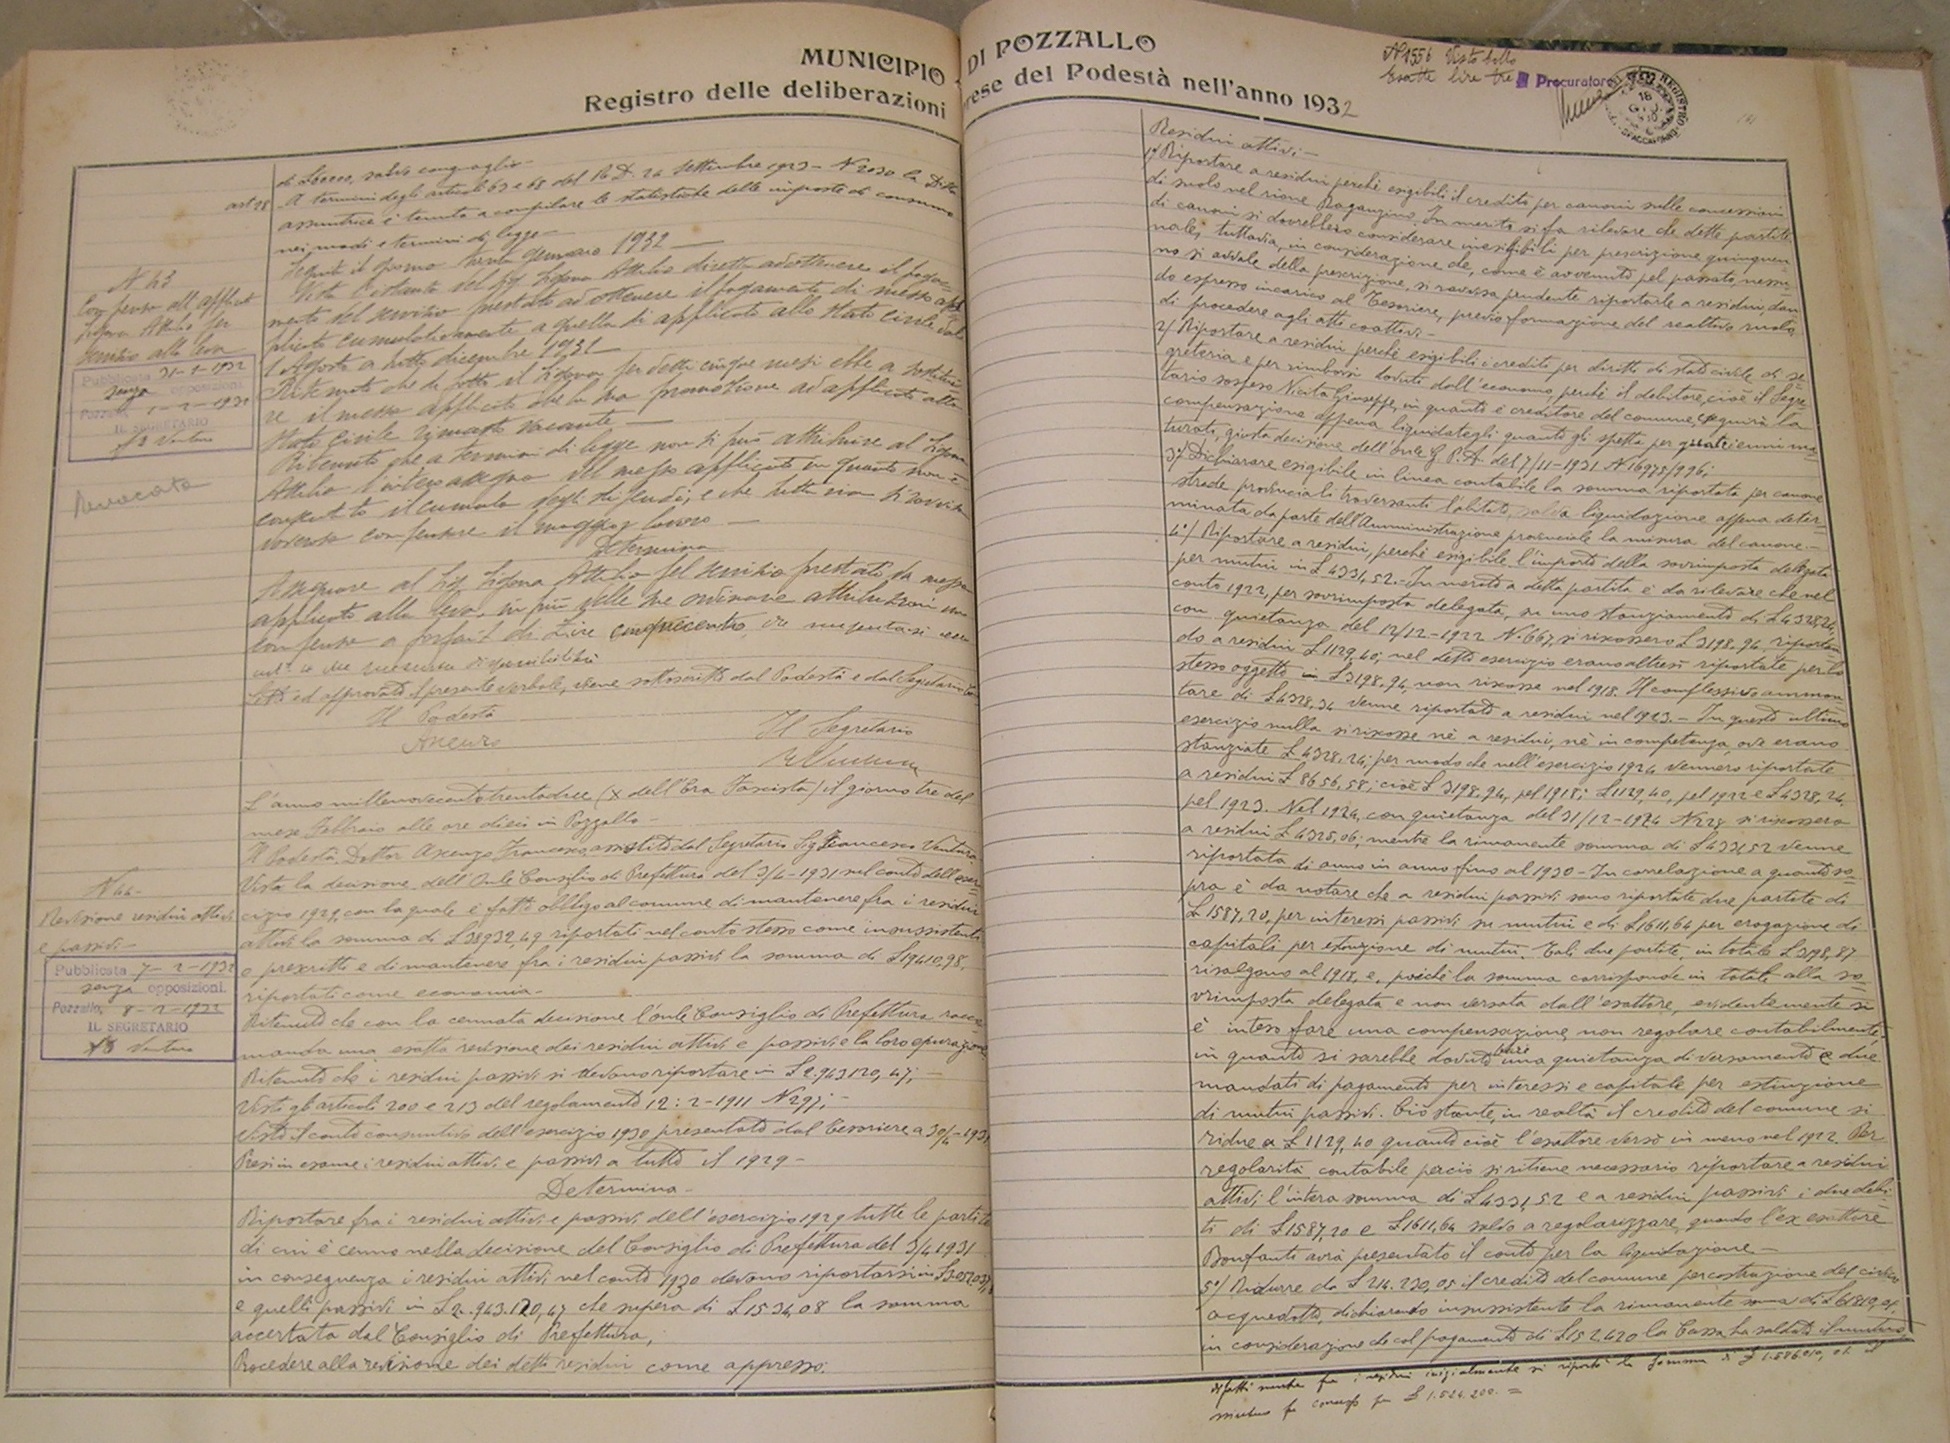 MUNICIPIO DI POZZALLO
Registro delle deliberazioni prese del Podestà nell'anno 1932
N 1556 Visto bollo
Esatte lire tre Procuratore
art 28
di Stocco, salvo conguaglio
A termini degli articoli 63 e 68 del R. D. 24 Settembre 1923 - N 2030 la Ditta
assuntrice è tenuta a compilare le statistiche delle imposte di consumo
nei modi e termini di legge
Seguito il giorno gennaio 1932
N 43
Compenso all'applicato
Attilio per
servizio alla leva
Pubblicata 31-1-1932
senza opposizioni
Pozzallo, 1-2-1932
IL SEGRETARIO
Ventura
Revocata
Vista l'istanza del Sig. Attilio diretta ad ottenere il paga-
mento del servizio prestato ad ottenere il pagamento di messo ap-
plicato cumulativamente a quello di applicato allo Stato Civile dal
1 Agosto a tutto dicembre 1931
Ritenuto che di fatto il per detti cinque mesi ebbe a sostitui-
re il messo applicato che ha promozione ad applicato allo
Stato Civile rimasto vacante
Ritenuto che a termini di legge non si può attribuire al
Attilio l'intero assegno del messo applicato in quanto non è
consentito il cumulo degli stipendi, e che tutta via si ravvisa
doveroso compensare il maggior lavoro
Determina
Assegnare al Sig. Attilio pel servizio prestato da messo
applicato alla leva, in più delle sue ordinarie attribuzioni un
compenso a forfait di Lire cinquecento
Letto ed approvato il presente verbale, viene sottoscritto dal Podestà e dal Segretario
Il Podestà
Il Segretario
L'anno millenovecentotrentadue (X dell'Era Fascista) il giorno tre del
mese Febbraio alle ore dieci in Pozzallo
Il Podestà Dottor Francesco, assistito dal Segretario Sig. Francesco Ventura
N 44-
Revisione residui attivi
e passivi
Pubblicata 7-2-1932
senza opposizioni.
Pozzallo, 8-2-1932
IL SEGRETARIO
Ventura
Vista la decisione dell'On.le Consiglio di Prefettura del 3/4-1931 sul conto dell'eser-
cizio 1929, con la quale è fatto obbligo al comune di mantenere fra i residui
attivi la somma di £ 38932,49 riportati nel conto stesso come insussistenti
o prescritti e di mantenere fra i residui passivi la somma di £ 19410,98,
riportati come economia
Ritenuto che con la cennata decisione l'on.le Consiglio di Prefettura racco-
manda una esatta revisione dei residui attivi e passivi e la loro epurazione
Ritenuto che i residui passivi si devono riportare in £ 2.943120,47;
Visti gli articoli 200 e 213 del regolamento 12-2-1911 N 297;
Visto il conto consuntivo dell'esercizio 1930 presentato dal Tesoriere a 30/4-1931
Presi in esame i residui attivi e passivi a tutto il 1929
Determina
Riportare fra i residui attivi e passivi dell'esercizio 1929 tutte le partite
di cui è cenno nella decisione del Consiglio di Prefettura del 3/4 1931
in conseguenza i residui attivi nel conto 1930 devono riportarsi in
e quelli passivi in £ 2.943.120,47 che supera di £ 1534,08 la somma
accertata dal Consiglio di Prefettura;
Procedere alla revisione dei detti residui come appresso:
Residui attivi:
1°/ Riportare a residui perchè esigibili il credito per canoni sulle concessioni
di suolo nel rione Raganzino. In merito si fa rilevare che dette partite
di canoni si dovrebbero considerare inesigibili per prescrizione quinquen-
nale; tuttavia, in considerazione che, come è avvenuto pel passato, nessu-
no si avvale della prescrizione, si ravvisa prudente riportarle a residui, dan-
do espresso incarico al Tesoriere, previo formazione del relativo ruolo,
di procedere agli atti coattivi
2°/ Riportare a residui perchè esigibili i crediti per diritti di stato civile, di se-
greteria e per rimborsi dovuti dall'economo, perchè il debitore, cioè il Segre-
tario sospeso Nicita Giuseppe, in quanto è creditore del comune, eseguirà la
compensazione appena liquidategli quanto gli spetta per quatriennii ma-
turati, giusta decisione dell'On.le G. P. A. del 7/11-1931 N 16975/996;
3°/ Dichiarare esigibile in linea contabile la somma riportata per canone
strade provinciali traversanti l'abitato, salva liquidazione appena deter-
minata da parte dell'Amministrazione provinciale la misura del canone
4°/ Riportare a residui, perchè esigibile l'importo della sovrimposta delegata
per mutui in £ 4331,52. In merito a detta partita è da rilevare che nel
conto 1922, per sovrimposta delegata, su uno stanziamento di £ 4328,24,
con quietanza del 12/12-1922 N. 667, si riscossero £ 3198,94, riportan-
do a residui £ 1129,40; nel detto esercizio erano altresì riportate per lo
stesso oggetto in £ 3198,94, non riscosse nel 1918. Il complessivo ammon-
tare di £ 4328,34 venne riportato a residui nel 1923. - In questo ultimo
esercizio nulla si riscosse nè a residui, nè in competenza, ove erano
stanziate £ 4328,24; per modo che nell'esercizio 1924 vennero riportate
a residui £ 8656,58; cioè £ 3198,94, pel 1918; £ 1129,40, pel 1922 e £ 4328,24,
pel 1923. Nel 1924, con quietanza del 31/12-1924 N 28, si riscossero
a residui £ 4325,06; mentre la rimanente somma di £ 4331,52 venne
riportata di anno in anno fino al 1930 - In correlazione a quanto so-
pra è da notare che a residui passivi sono riportate due partite di
£ 1587,20, per interessi passivi su mutui e di £ 1611,64 per erogazione di
capitali per estinzione di mutui. Tali due partite, in totale £ 3198,87
risalgono al 1918, e, poichè la somma corrisponde in totale alla so-
vrimposta delegata e non versata dall'esattore, evidentemente si
è inteso fare una compensazione non regolare contabilmente,
in quanto si sarebbe dovuto una quietanza di versamento e due
mandati di pagamento per interessi e capitale per estinzione
di mutui passivi. Ciò stante, in realtà il credito del comune si
riduce a £ 1129,40 quanto cioè l'esattore versò in meno nel 1922. Per
regolarità contabile perciò si ritiene necessario riportare a residui
attivi l'intera somma di £ 4331,52 e a residui passivi i due debi-
ti di £ 1587,20 e £ 1611,64 salvo a regolarizzare, quando l'ex esattore
Bonfanti avrà presentato il conto per la liquidazione
5°/ Ridurre da £ 214.230,05 il credito del comune per costruzione del civico
acquedotto, dichiarando insussistente la rimanente somma di £
in considerazione che col pagamento di £ 152,420 la Cassa ha saldato il mutuo
difatti mentre fra i residui inizialmente si riportò la somma di £ 1.586.010,01 il
mutuo fu concesso per £ 1.524.200. =